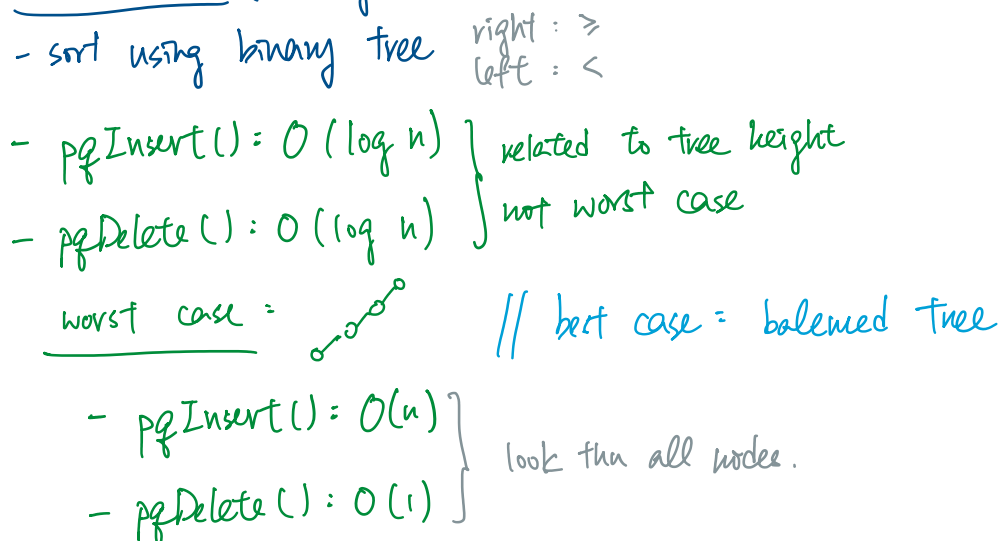 - sort using binary tree
right : ≥
left : <
- pqInsert() : O(log n)
- pqDelete() : O(log n)
related to tree height
not worst case
worst case :
// best case : balenced tree
- pqInsert() : O(n)
- pqDelete() : O(1)
look thu all nodes.